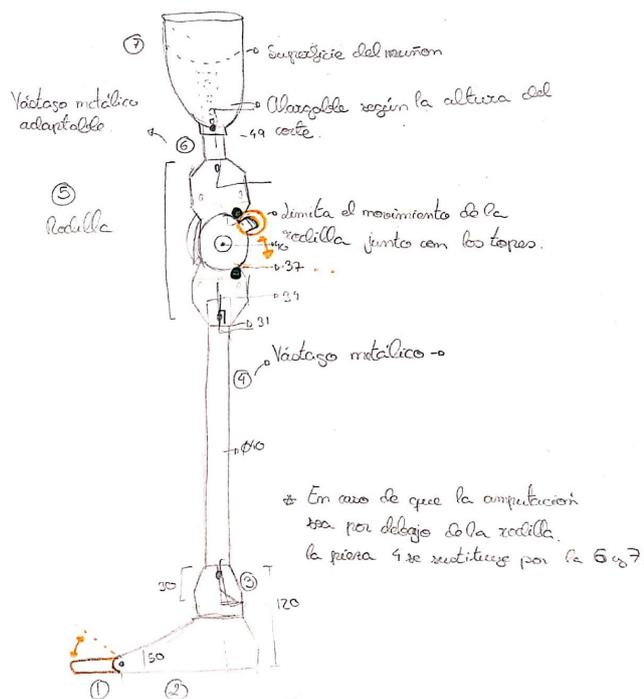 ⑦
Superficie del muñon
Vástago metálico
adaptable
Alargable según la altura del
corte.
49
⑥
⑤
Rodilla
Limita el movimiento de la
rodilla junto con los topes.
40
37
34
31
④
Vástago metálico
Ø40
* En caso de que la amputación
sea por debajo de la rodilla,
la pieza 4 se sustituye por la 6 y 7
30
③
120
50
① ②